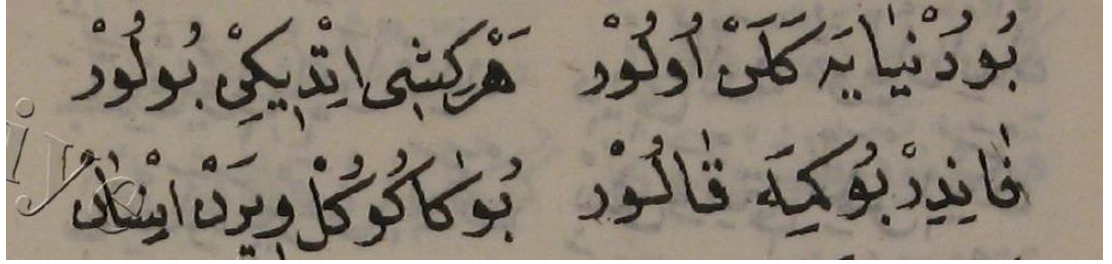 بُو دُنْيَايَه كَلَنْ اُولُورْ هَرْ كِشِى اِتْدِيكِنْ بُولُورْ
فَانِيدِرْ بُو كِمَه قَالُورْ بُوكَا كُوكُلْ وِيرَنْ اِنْسَانْ